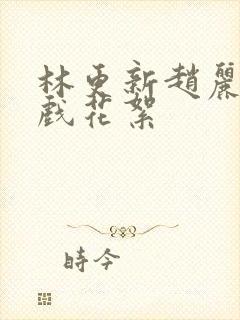 林更新趙麗
戲花絮
時今